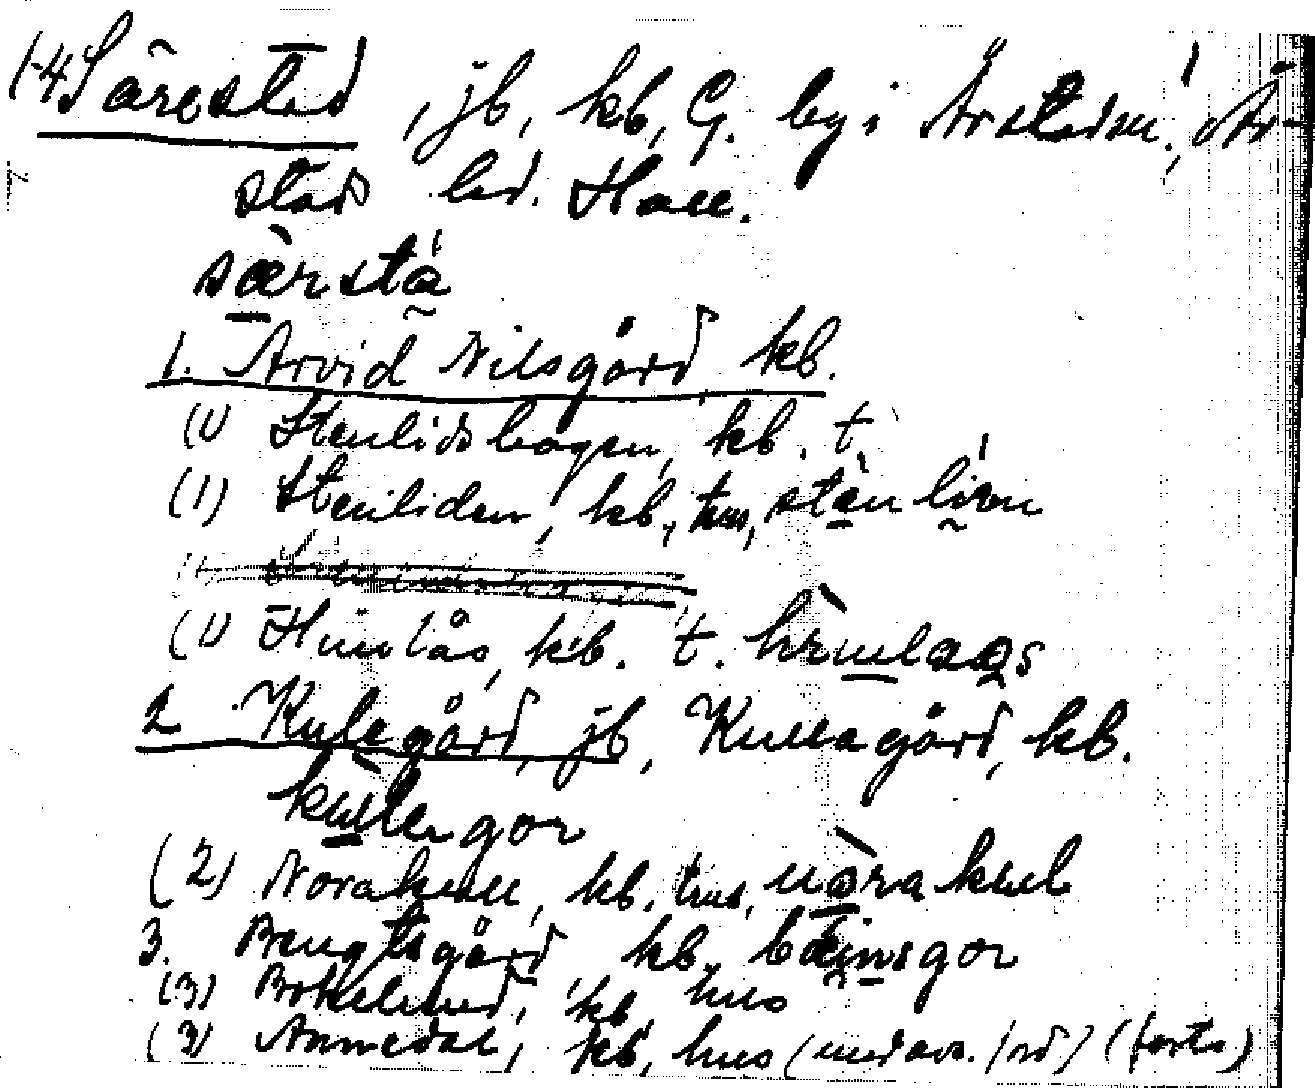 (-4 Särestad, jb, kb, G. by i Årstad sn., År-
stad hd. Hall.
særsta
1. Arvid Nilsgård, kb.
(1) Stenlidsbogen, kb. t
(1) Stenliden, kb., hus, stænlin
(1) Himlås, kb. t. himlaas
2 Kulegård, jb, Kullagård, kb.
kullegor
(2) Norakull, kb. hus, nårakul
3. Bengtsgård kb. bæinsgor
(3) Bokelund, kb, hus
(3) Annedal, kb, hus (ned avs. /rd) (forts)